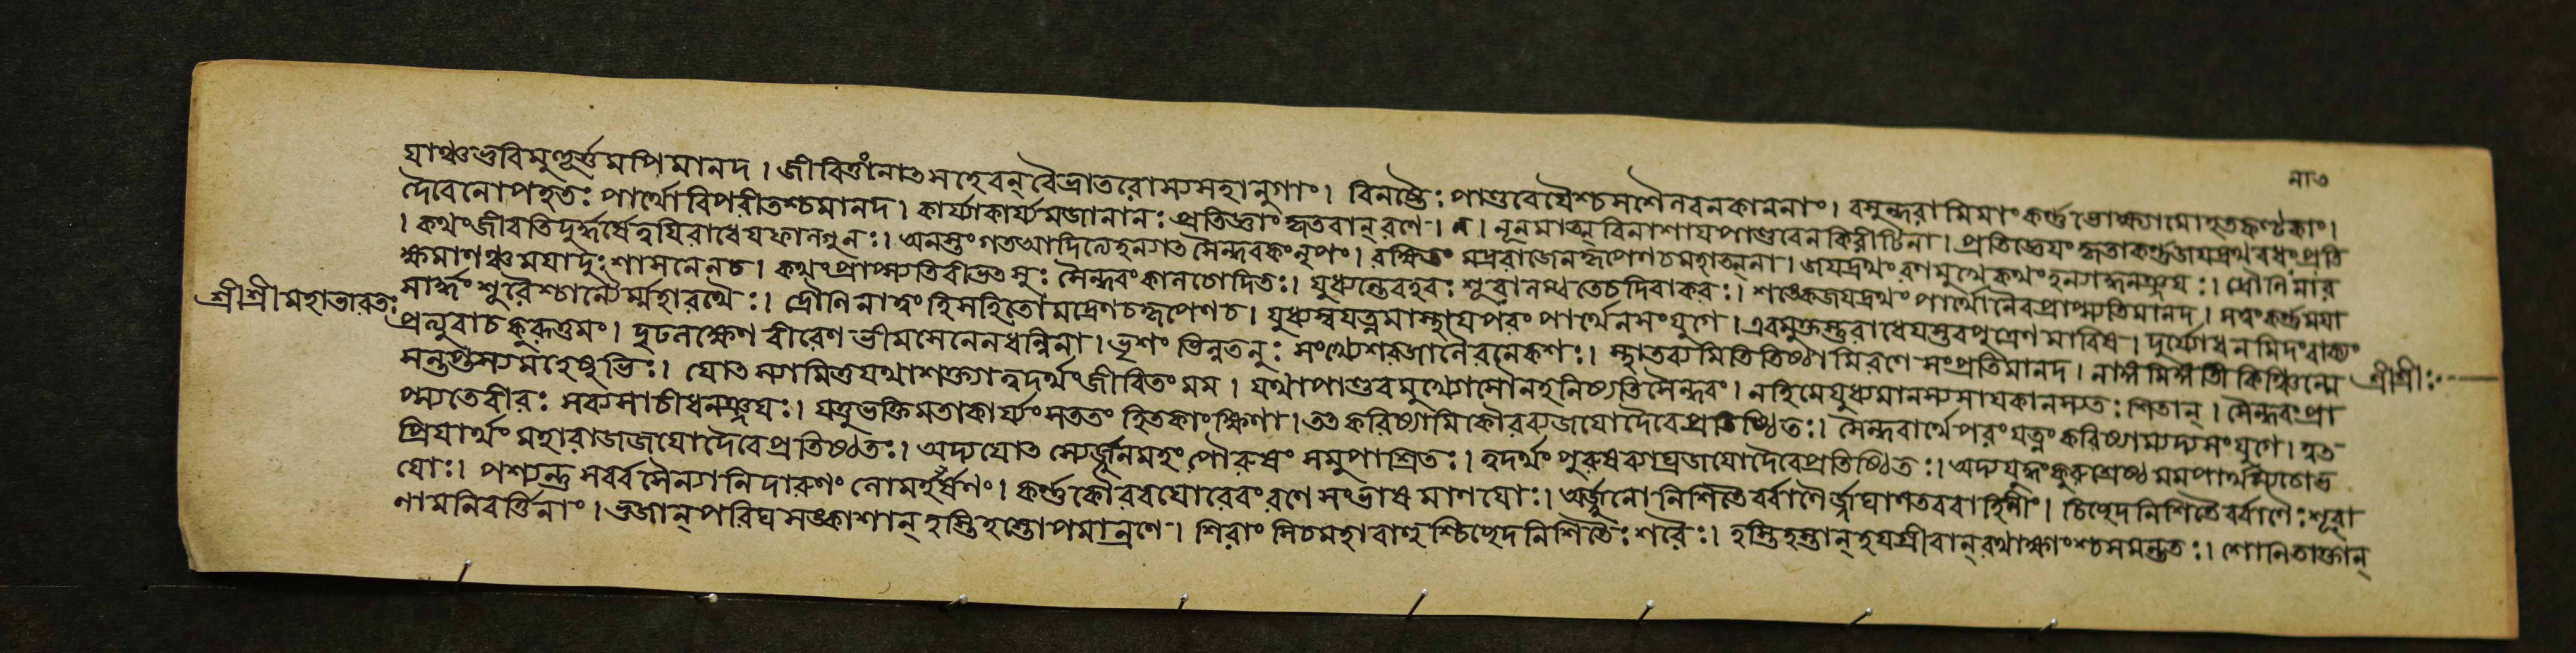 নাত
যাঞ্চভুবিমুহূর্ত্তমপিমানদ। জীবিতাংনোত্সহেবন্ বৈভ্রাতরোমস্যমহানুগাং। বিনষ্টৈঃ পাণ্ডবেযৈশ্চসশৈনবনকাননাং। বসুন্ধরামিমাংকর্ণ্ণভোক্ষ্যামোহতকণ্টকাং।
দৈবেনোপহতঃ পার্থোবিপরীতশ্চমানদ। কার্য্যাকার্য্যমজানানঃ প্রতিজ্ঞাংকৃতবান্ রণে।  নূনমাত্মবিনাশাযপাণ্ডবেনকিরীটিনা। প্রতিজ্ঞেযংকৃতাকর্ণ্ণজযদ্রথবধংপ্রতি
। কথংজীবতিদুর্দ্ধর্ষেত্বযিরাধেযফানগুনঃ। অনস্তংগতআদিত্যেহন্যাত সৈন্ধবকংনৃপং। রক্ষিতং মদ্ররাজেনকৃপেণচমহাত্মনা। জযদ্রথংরণমুখেকথংহন্যাদ্ধনঞ্জযঃ। দ্রৌণিনার
ক্ষমাণঞ্চমযাদুঃশাসনেনচ। কথংপ্রাপ্স্যতিবীভত্সুঃ সৈন্ধবংকানচোদিতঃ। যুধ্যন্তেবহবঃ শূরানম্বতেচদিবাকরঃ। শঙ্কেজযদ্রথংপার্থোনৈবপ্রাপ্স্যতিমানদ। সত্বংকর্ণ্ণমযা
সার্দ্ধংশুরৈশ্চান্যৈর্ম্মহারথৈঃ। দ্রৌনিনাত্বংহিসহিতোমদ্রেণচকৃপেণচ। যুধ্যস্বযত্নমাস্থাযপরংপার্থেনসংযুগে। এবমুক্তস্তুরাধেযস্তবপুত্রেণমারিষ। দুর্য্যোধনমিদংবাক্যং
শ্রীশ্রীমহাভারতঃ
প্রত্যুবাচকুরূত্তমং। দৃঢনক্ষেণ বীরেণ ভীমসেনেনধন্বিনা। ভৃশংভিন্নতনুঃ সংখ্যেশরজানৈরনেকশঃ। স্থাতব্যমিতিতিষ্ঠামিরণেসংপ্রতিমানদ। নাঙ্গমিঙ্গতিকিঞ্চিন্মে
শ্রীশ্রীঃ
সন্তপ্তস্যমহেষুভিঃ। যোত্স্যামিতুযথাশক্ত্যাত্বদর্থংজীবিতংমম। যথাপাণ্ডবমুখ্যোসৌনহনিষ্যতিসৈন্ধবং। নহিমেযুধ্যমানস্যসাযকানস্যতঃ শিতান্। সৈন্ধবংপ্রা
প্স্যতেবীরঃ সব্যসাচীধনঞ্জযঃ। যত্তুভক্তিমতাকার্য্যংসততংহিতকাংক্ষিণা। তত্করিষ্যামিকৌরব্যজযোদৈবেপ্রতিষ্ঠিতঃ। সৈন্ধবার্থেপরংযত্নংকরিষ্যাম্যদ্যসংযুগে। ত্বত
প্রিযার্থংমহারাজজযোদৈবেপ্রতিষ্ঠিতঃ। অদ্যযোত্স্যেঽর্জ্জুনমহংপৌরুষং সমুপাশ্রিতঃ। ত্বদর্থংপুরুষব্যাঘ্রজযোদৈবেপ্রতিষ্ঠিতঃ। অদ্যযুদ্ধংকুরুশ্রেষ্ঠমমপার্থস্যচোভ
যোঃ। পশ্যন্তুসর্বসৈন্যানিদারুণংনোমহর্ষণং। কর্ণ্ণকৌরবযোরেবংরণেসংভাষমাণযোঃ। অর্জ্জুনোনিশিতৈর্বাণৈর্জ্জঘানতববাহিনীং। চিচ্ছেদনিশিতৈর্বাণৈঃশূরা
ণামনিবর্ত্তিনাং। ভুজান্ পরিঘসঙ্কাশান্ হস্তিহস্তোপমান্রণে। শিরাংসিচমহাবাহুশ্চিচ্ছেদনিশিতৈঃশরৈঃ। হস্তিহস্তান্ হযগ্রীবান্ রথাক্ষাংশ্চসমন্ততঃ। শোনিতাক্তান্